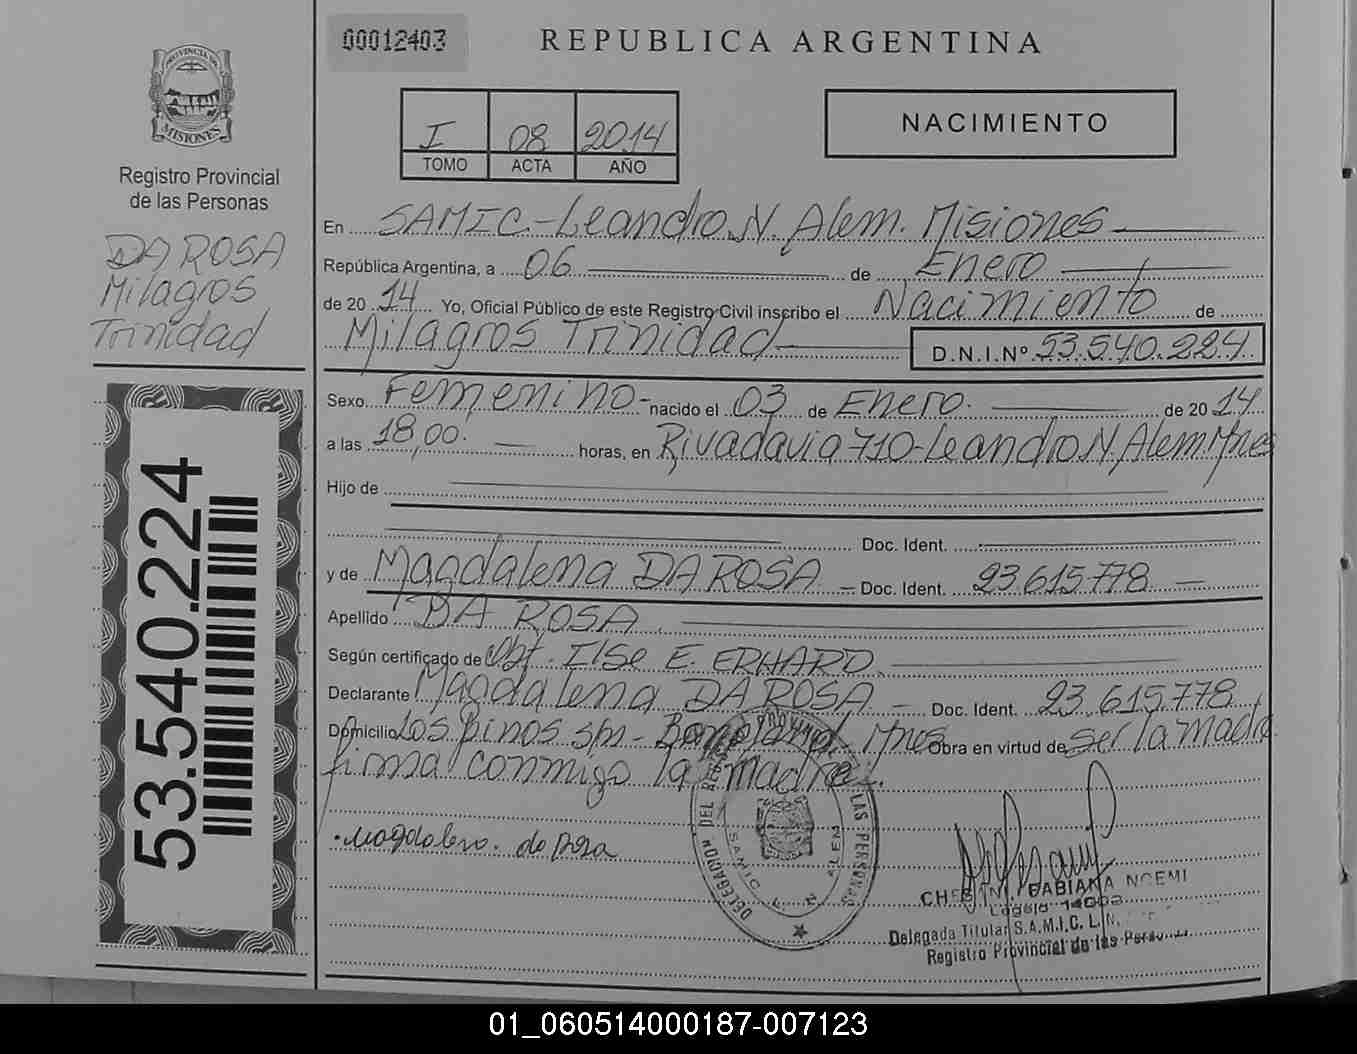 00012403
REPUBLICA ARGENTINA
PROVINCIA DE
MISIONES
Registro Provincial
de las Personas
DA ROSA
Milagros
Trinidad
53.540.224
I 08 2014
TOMO ACTA AÑO
NACIMIENTO
En SAMIC-Leandro N. Alem. Misiones
República Argentina, a 06 de Enero
de 2014 Yo, Oficial Público de este Registro Civil inscribo el Nacimiento de
Milagros Trinidad D.N.I.Nº 53.540.224
Sexo Femenino - nacido el 03 de Enero. de 2014
a las 18,00. horas, en Rivadavia 710-Leandro N. Alem Mnes
Hijo de
Doc. Ident.
y de Magdalena DA ROSA - Doc. Ident. 23.615.778
Apellido DA ROSA
Según certificado de Obt. Ilse E. ERHARD
Declarante Magdalena DA ROSA - Doc. Ident. 23.615.778
Domicilio Los Pinos s/n - Mnes Obra en virtud de ser la madre
firma conmigo la madre.
DELEGACION DEL REGISTRO PROVINCIAL DE LAS PERSONAS
SAMIC L. N. ALEM
FABIANA NOEMI
Legajo
Delegada Titular S.A.M.I.C. L.N.
Registro Provincial de las Personas
01_060514000187-007123